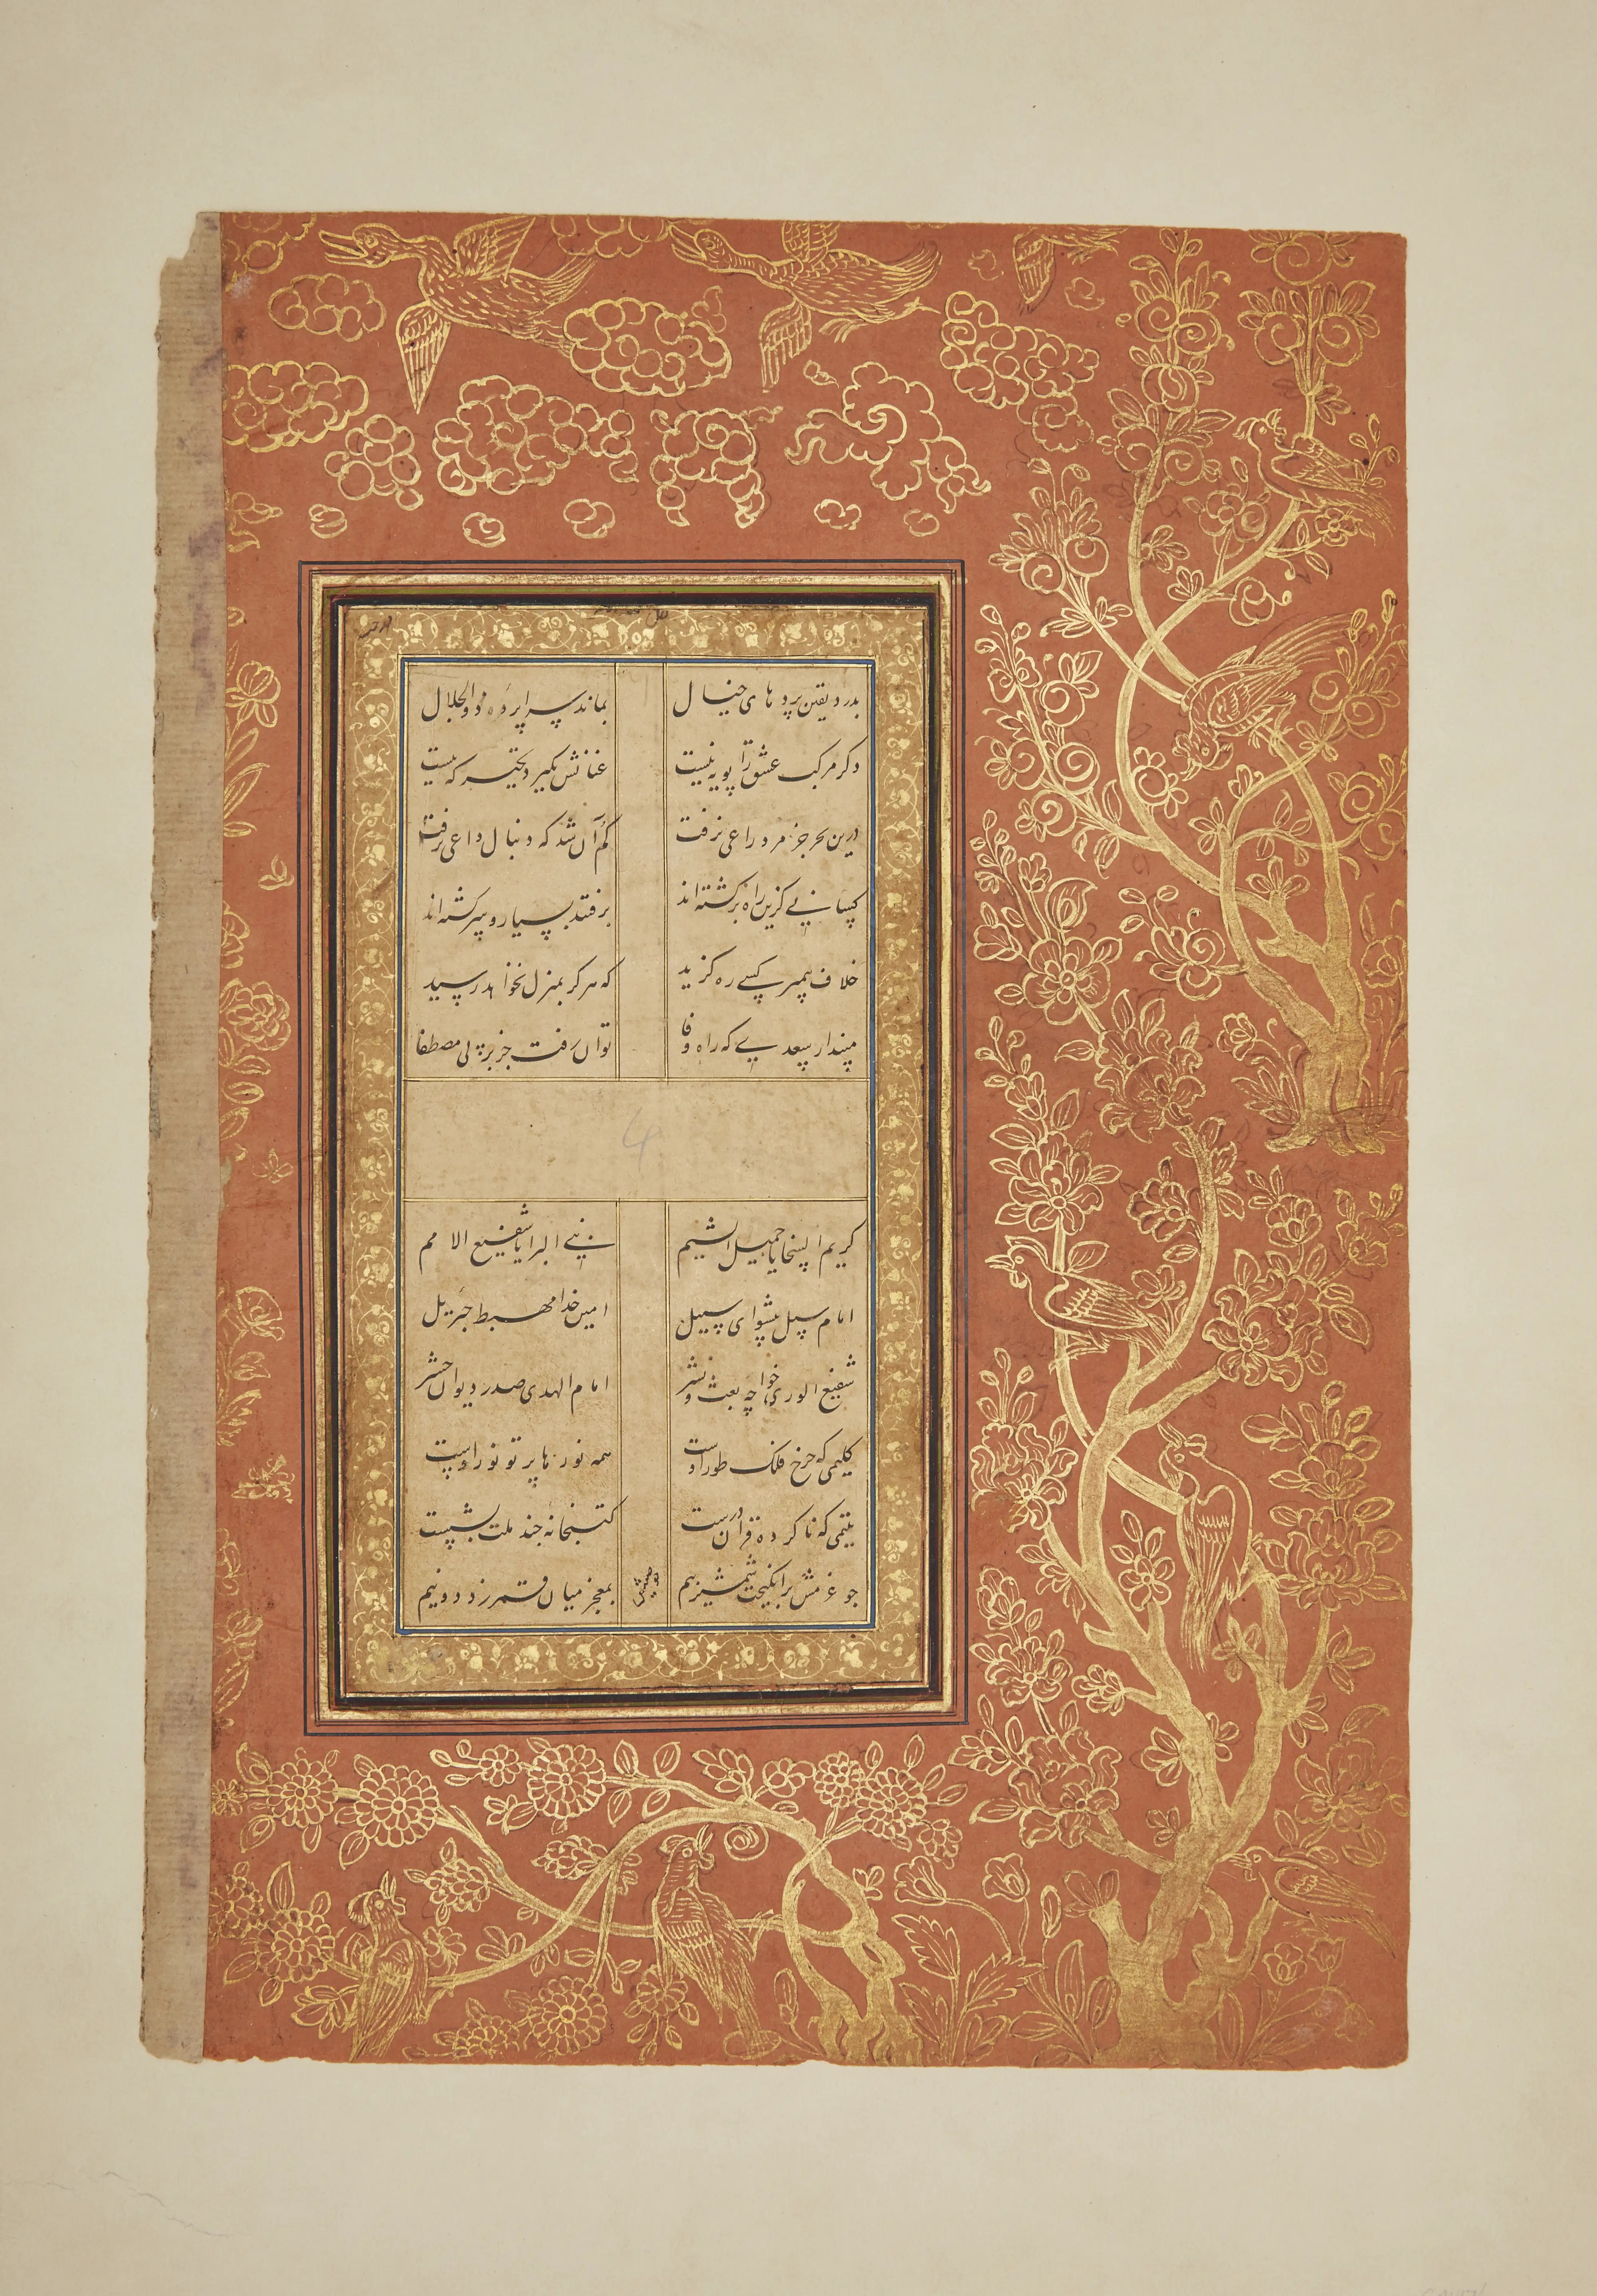 بدرد یقین پردهای خیال بماند سراپرده ذوالجلال
دگر مرکب عشق را پویه نیست عنانش بگیرد تحیر که بیست
درین بحر جز مرد راعی نرفت گم آن شد که دنبال داعی نرفت
کسانی کزین راه برگشته‌اند برفتند بسیار و سرگشته‌اند
خلاف پیمبر کسی ره گزید که هرگز بمنزل نخواهد رسید
مپندار سعدی که راه وفا توان رفت جز بر پی مصطفا
4
کریم السجایا جمیل الشیم نبی البرایا شفیع الامم
امام رسل پیشوای سبیل امین خدا مهبط جبرئیل
شفیع الوری خواجه بعث و نشر امام الهدی صدر دیوان حشر
کلیمی که چرخ فلک طور اوست همه نورها پرتو نور اوست
یتیمی که ناکرده قرآن درست کتبخانه چند ملت بشست
چو عزمش برانگیخت شمشیر بیم بمعجز میان قمر زد دو نیم